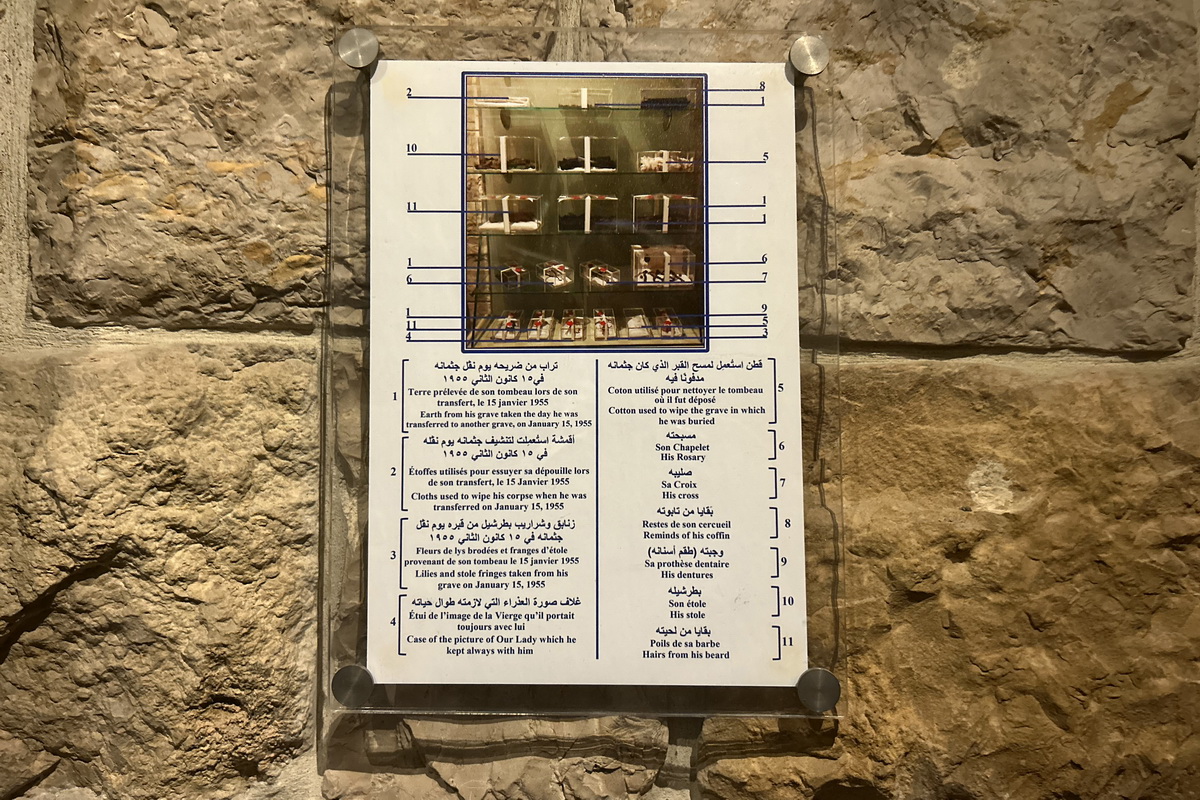 2
10
11
1
6
1
11
4
8
1
5
1
1
6
7
9
5
3
1
تراب من ضريحه يوم نقل جثمانه
في ١٥ كانون الثاني ١٩٥٥
Terre prélevée de son tombeau lors de son
transfert, le 15 janvier 1955
Earth from his grave taken the day he was
transferred to another grave, on January 15, 1955
2
أقمشة استُعملت لتنشيف جثمانه يوم نقله
في ١٥ كانون الثاني ١٩٥٥
Étoffes utilisés pour essuyer sa dépouille lors
de son transfert, le 15 Janvier 1955
Cloths used to wipe his corpse when he was
transferred on January 15, 1955
3
زنابق وشراريب بطرشيل من قبره يوم نقل
جثمانه في ١٥ كانون الثاني ١٩٥٥
Fleurs de lys brodées et franges d'étole
provenant de son tombeau le 15 janvier 1955
Lilies and stole fringes taken from his
grave on January 15, 1955
4
غلاف صورة العذراء التي لازمته طوال حياته
Étui de l'image de la Vierge qu'il portait
toujours avec lui
Case of the picture of Our Lady which he
kept always with him
قطن استُعمل لمسح القبر الذي كان جثمانه
مدفونًا فيه
Coton utilisé pour nettoyer le tombeau
où il fut déposé
Cotton used to wipe the grave in which
he was buried
5
مسبحته
Son Chapelet
His Rosary
6
صليبه
Sa Croix
His cross
7
بقايا من تابوته
Restes de son cercueil
Reminds of his coffin
8
وجبته (طقم أسنانه)
Sa prothèse dentaire
His dentures
9
بطرشيله
Son étole
His stole
10
بقايا من لحيته
Poils de sa barbe
Hairs from his beard
11